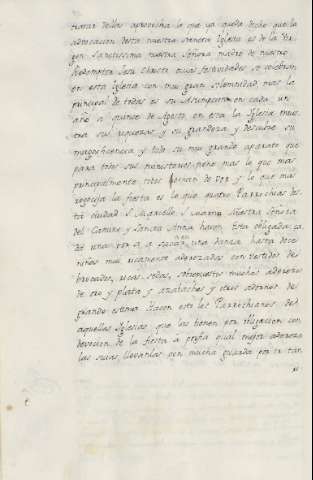 tratar dellas aprovecha lo que ya queda dicho que la
advocacion desta nuestra Sancta Iglesia es de la Vir
gen Sanctissima nuestra Señora madre de nuestro
Redemptor Jesu Christo cuias festividades se celebran
en esta Iglesia con muy gran solemnidad, mas la
principal de todas es su Assumpcion en cada un
año a quinze de Agosto, en esta la Iglesia mues
tra sus riquezas, y su grandeza, y descubre su
magnificencia, y todo su muy grande aparato que
para tales sus ministerios tiene mas lo que mas
principalmente todos de ver y lo que mas
regocija la fiesta es lo que quatro Parrochias des
ta ciudad S. Miguel, S. Nuestra Señora
del Carmen y Sancta Anna hacen. Esta obligada ca
da una por a sacar una danza hasta doce
niños muy ricamente aderezados con vestidos de
brocados, ricas sedas, sobrepuestos muchos adereços
de oro y plata y azabaches y otros adornos de
grande estima Hacen esto los Parrochianos de
aquellas Iglesias que los tienen por obligacion con
devocion de la fiesta a porfia qual mejor adereza
las suias, llevanlas con mucha guarda por ir tan